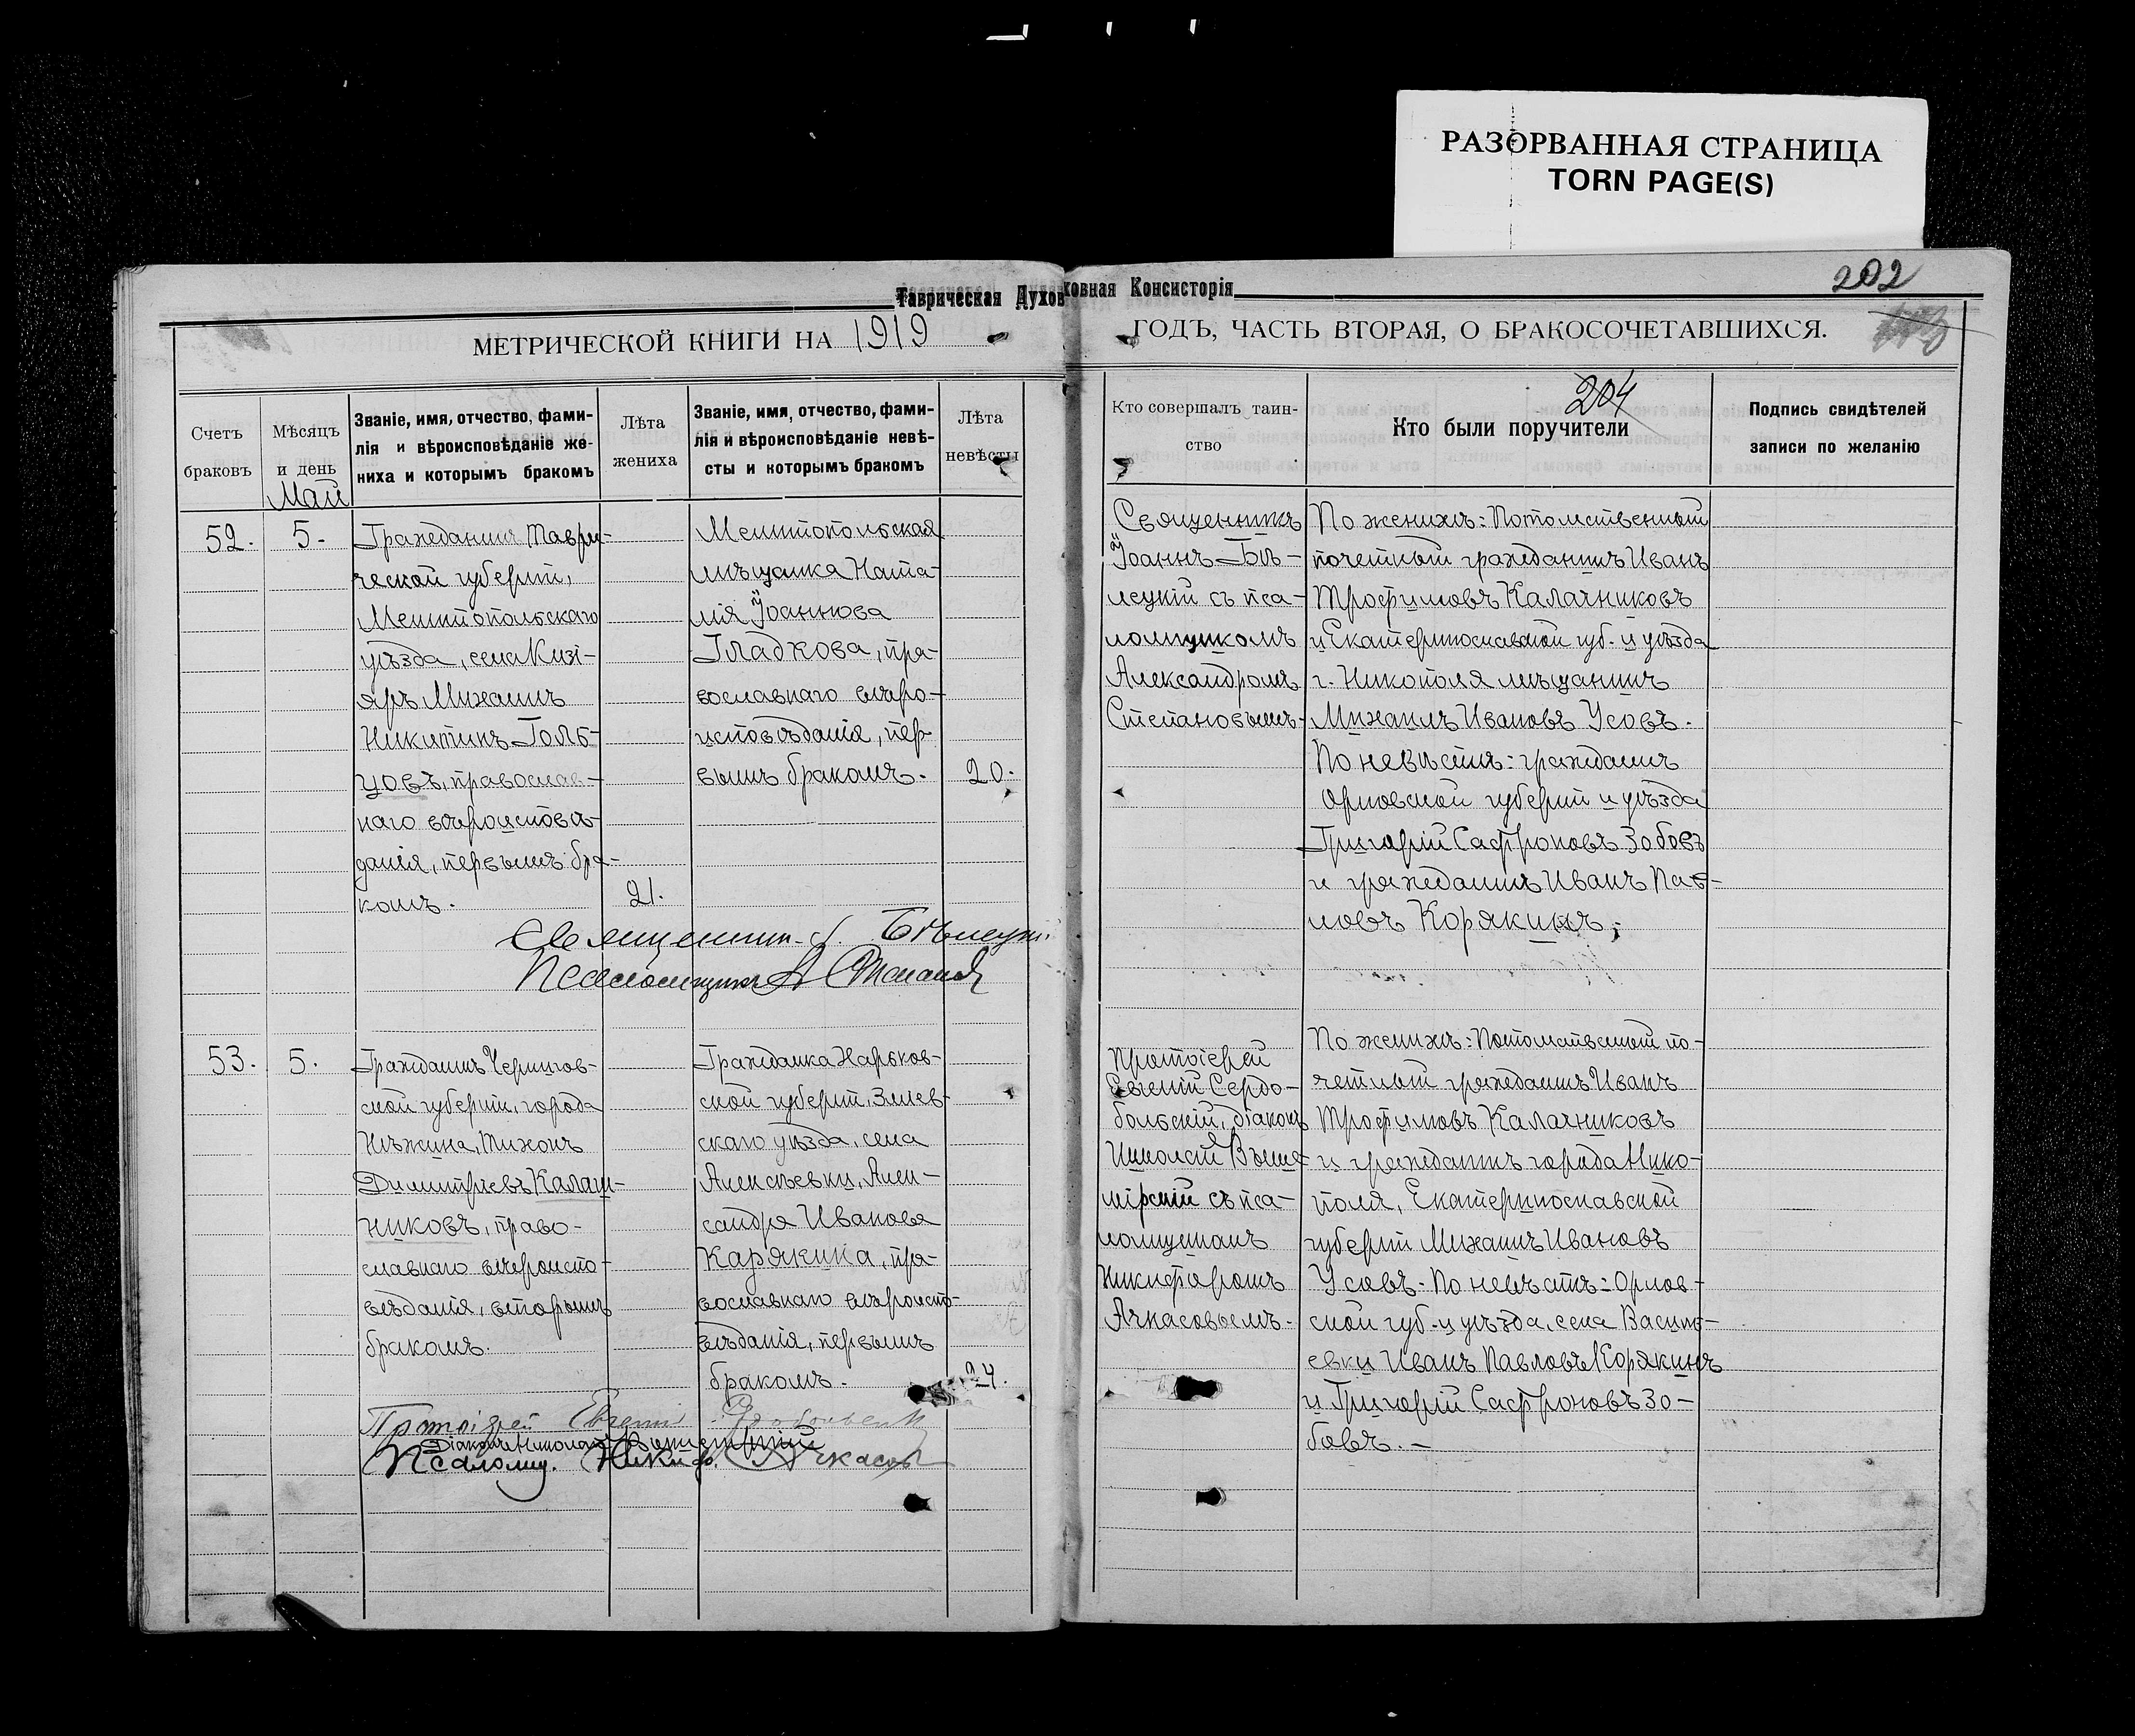 РАЗОРВАННАЯ СТРАНИЦА
TORN PAGE(S)
Таврическая Духовная Консисторія
202
МЕТРИЧЕСКОЙ КНИГИ НА 1919 ГОДЪ, ЧАСТЬ ВТОРАЯ, О БРАКОСОЧЕТАВШИХСЯ.
204
Счетъ
браковъ
Мѣсяцъ
и день
Май
Званіе, имя, отчество, фами-
лія и вѣроисповѣданіе же-
ниха и которымъ бракомъ
Лѣта
жениха
Званіе, имя, отчество, фами-
лія и вѣроисповѣданіе невѣ-
сты и которымъ бракомъ
Лѣта
невѣсты
Кто совершалъ таин-
ство
Кто были поручители
Подпись свидѣтелей
записи по желанію
52.
5.
Гражданинъ Таври-
ческой губерніи,
Мелитопольскаго
уѣзда, села Кизі-
яръ Михаилъ
Никитинъ Голь-
цовъ, православ-
наго вѣроисповѣ-
данія, первымъ бра-
комъ.
21.
Мелитопольская
мѣщанка Ната-
лія Іоаннова
Гладкова, пра-
вославнаго вѣро-
исповѣданія, пер-
вымъ бракомъ.
20.
Священникъ
Іоаннъ Бѣ-
лецкій съ пса-
ломщикомъ
Александромъ
Степановымъ.
По женихѣ: Потомственный
почетный гражданинъ Иванъ
Трофимовъ Калачниковъ
и Екатеринославской губ. и уѣзда
г. Никополя мѣщанинъ
Михаилъ Ивановъ Усовъ.
По невѣстѣ: гражданинъ
Орловской губерніи и уѣзда
Григорій Сафроновъ Зобовъ
и гражданинъ Иванъ Пав-
ловъ Корякинъ;
Священник І. Бѣлецкі
Псаломщикъ А Степановъ
53.
5.
Гражданинъ Чернигов-
ской губерніи, города
Нѣжина, Тихонъ
Димитріевъ Калаш-
никовъ, право-
славнаго вѣроиспо-
вѣданія, вторымъ
бракомъ.
Гражданка Харьков-
ской губерніи, Зміев-
скаго уѣзда, села
Алексѣевки, Алек-
сандра Иванова
Карякина, пра-
вославнаго вѣроиспо-
вѣданія, первымъ
бракомъ.
24.
Протоіерей
Евгеній Сердо-
больскій, діаконъ
Николай Выше-
мірскій съ пса-
ломщикомъ
Никифоромъ
Ачкасовымъ.
По женихѣ: Потомственный по-
четный гражданинъ Иванъ
Трофимовъ Калачниковъ
и гражданинъ города Нико-
поля, Екатеринославской
губерніи Михаилъ Ивановъ
Усовъ. По невѣстѣ: Орлов-
ской губ. и уѣзда, села Васить-
евки Иванъ Павловъ Корякинъ
и Григорій Сафроновъ Зо-
бовъ.
Протоіерей Евгеній Сердобольскій
Діаконъ Николай Вышемірскій
Псаломщ. Никиф. Ачкасовъ